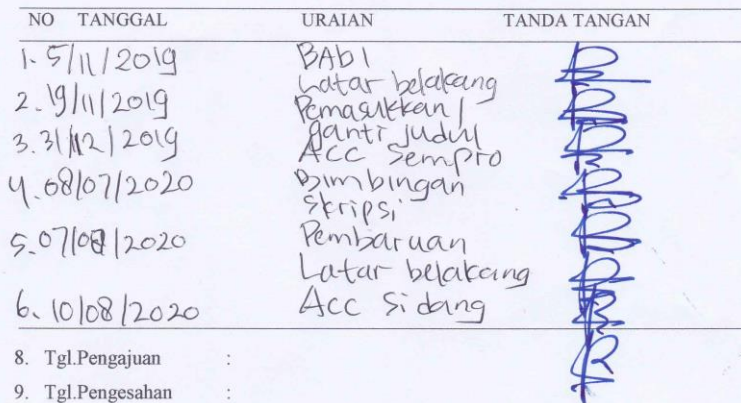 NO TANGGAL URAIAN TANDA TANGAN
1. 5/11/2019 BAb I
Latar belakang
2. 19/11/2019 Pemasukkan /
ganti judul
3. 31/12/2019 ACC Sempro
4. 08/07/2020 Bimbingan
Skripsi
5. 07/08/2020 Pembaruan
Latar belakang
6. 10/08/2020 Acc Sidang
8. Tgl.Pengajuan :
9. Tgl.Pengesahan :